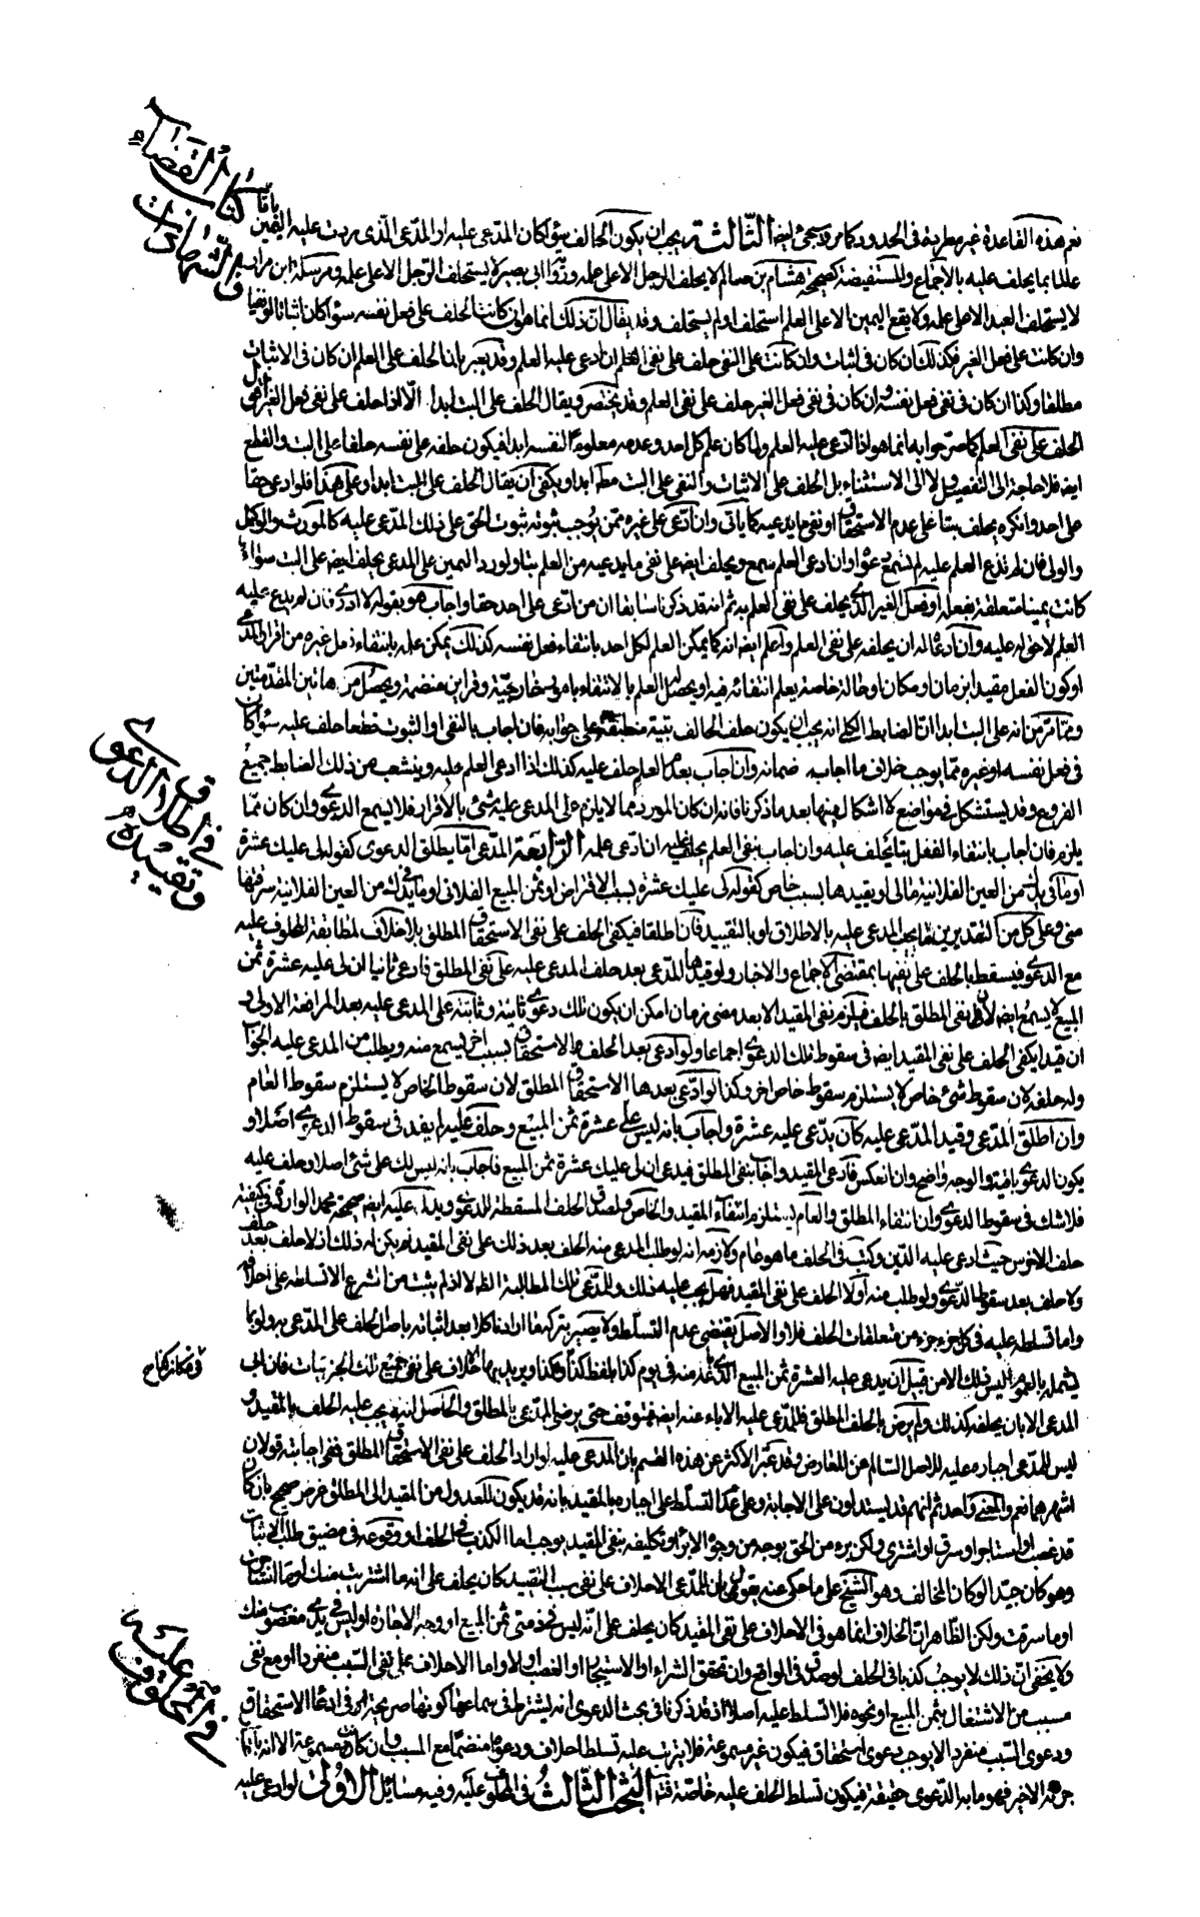 كتاب القضاء
والشهادات
نعم هذه القاعدة غير مطردة في الحدود كما مر ويجئ ايضا الثالثة يجب ان يكون الحالف سواء كان المدعى عليه او المدعي الذي ردت عليه اليمين
عالما بما يحلف عليه بالاجماع والمستفيضة كصحيحة هشام بن سالم لا يحلف الرجل الا على علمه ورواية ابي بصير لا يستحلف الرجل الا على علمه ومرسلة ابن مرار
لا يستحلف العبد الا على علمه ولا يقع اليمين الا على العلم استحلف او لم يستحلف وقد يقال ان ذلك انما هو ان كان الحلف على فعل نفسه سواء كان اثباتا او نفيا
وان كانت على فعل الغير فكذلك ان كان في اثبات وان كانت على النفي حلف على نفي العلم ان ادعى عليه العلم وقد يعبر بان الحلف على العلم ان كان في الاثبات
مطلقا وكذا ان كان في نفي فعل نفسه وان كان في نفي فعل الغير حلف على نفي العلم وقد يختصر ويقال الحلف على البت ابدا الا اذا حلف على نفي فعل الغير
الحلف على نفي العلم كما صرحوا به انما هو اذا ادعى عليه العلم ولما كان علم كل احد وعدمه معلوما لنفسه ابدا فيكون حلفه على نفسه حلفا على البت والقطع
ايضا فلا حاجة الى التفصيل ولا الى الاستثناء بل الحلف على الاثبات والنفي على البت مطلقا ابدا ويكفي ان يقال الحلف على البت ابدا وعلى هذا فلو ادعى حقا
على احد وانكره يحلف بتا على عدم الاستحقاق او نفي ما يدعيه كما يأتي وان ادعى على غيره ممن يوجب ثبوته ثبوت الحق على ذلك المدعى عليه كالمورث والوكيل
والولي فان لم يدع العلم عليه لم تسمع دعواه وان ادعى العلم سمع ويحلف ايضا على نفي ما يدعيه من العلم بتا ولو رد اليمين على المدعي يحلف ايضا على البت سواء
كانت يمينا متعلقة بفعله او فعل الغير الذي يحلف على نفي العلم به ثم انه قد ذكرنا سابقا ان من ادعى على احد حقا واجاب هو بقوله لا ادري فان لم يدع عليه
العلم لا حق له عليه وان ادعاه له ان يحلفه على نفي العلم واعلم ايضا انه كما يمكن العلم لكل احد بانتفاء فعل نفسه كذلك يمكن علمه بانتفاء فعل غيره
او كون الفعل مقيدا بزمان او مكان او حالة خاصة يعلم انتفائه فيه او يحصل العلم بالانتفاء بامور خارجية وقراين منضمة ويحصل من هاتين المقدمتين
ومما مر من انه على البت ابدا ان الضابط الكلي انه يجب ان يكون حلف الحالف بتية منطبقة على جوابه فان اجاب بالنفي او الثبوت قطعا حلف عليه سواء كان
في فعل نفسه او غيره مما يوجب خلاف ما اجاب به ضمانه وان اجاب بعدم العلم حلف عليه كذلك اذا ادعى العلم عليه وينشعب من ذلك الضابط جميع
الفروع وقد يستشكل في مواضع لا اشكال فيها بعد ما ذكرنا فانه ان كان المورد مما لا يلزم على المدعى عليه شئ بالاقرار فلا يسمع الدعوى وان كان مما
يلزم فان اجاب بانتفاء الفعل بتا يحلف عليه وان اجاب بنفي العلم يحلف عليه ان ادعى علمه الرابعة المدعي اما يطلق الدعوى كقوله لي عليك عشرة
من العين الفلانية مالي او يقيدها بسبب خاص كقوله لي عليك عشرة بسبب الاقتراض او ثمن المبيع الفلاني من العين الفلانية سرقتها
مني وعلى كل من التقديرين اما يجيب المدعى عليه بالاطلاق او بالتقييد فان اطلقا فيكفي الحلف على نفي الاستحقاق المطلق بلا خلاف لمطابقة المحلوف عليه
مع الدعوى فيسقط بالحلف على نفيها بمقتضى الاجماع والاخبار ولو قيدها المدعي بعد حلف المدعى عليه على نفي المطلق فادعى ثانيا ان لي عليه عشرة ثمن
المبيع لا يسمع ايضا لان نفي المطلق بالحلف فيلزم نفي المقيد الا بعد مضي زمان امكن ان يكون تلك دعوى ثانية وثابتة على المدعى عليه بعد المرافعة الاولى و
ان قيدا يكفي الحلف على نفي المقيد ايضا في سقوط تلك الدعوى اجماعا ولو ادعى بعد الحلف الاستحقاق بسبب اخر يسمع منه ويطلب من المدعى عليه الجواب
وله حلفه لان سقوط شئ خاص لا يستلزم سقوط خاص اخر وكذا لو ادعى بعدها الاستحقاق المطلق لان سقوط الخاص لا يستلزم سقوط العام
وان اطلق المدعي وقيد المدعى عليه كأن يدعي عليه عشرة واجاب بانه ليس علي عشرة ثمن المبيع وحلف عليه لم يفد في سقوط الدعوى اصلا و
يكون الدعوى باقية والوجه واضح وان انعكس فادعى المقيد واجاب بنفي المطلق فيدعي ان لي عليك عشرة ثمن المبيع فاجاب بانه ليس لك علي شئ اصلا وحلف عليه
فلا شك في سقوط الدعوى وان انتفاء المطلق والعام يستلزم انتفاء المقيد والخاص ولصدق الحلف المسقطة للدعوى ويدل عليه ايضا صحيحة محمد الواردة في كيفية
حلف الاخرس حيث ادعى عليه الدين وكتب في الحلف ما هو عام ولازمه انه لو طلب المدعي منه الحلف بعد ذلك على نفي المقيد لم يكن له ذلك اذ لا حلف بعد حلف
ولا حلف بعد سقوط الدعوى ولو طلب منه اولا الحلف على نفي المقيد فهل يجب عليه ذلك وللمدعي تلك المطالبة الظاهر لا اذ لم يثبت من الشرع الا تسلطه على احلافه
واما تسلطه عليه في كل جزء جزء من متعلقات الحلف فلا والاصل يقتضي عدم التسلط ولا يصير بتركها
يشمله بالعموم اليس ذلك الا من قبيل ان يدعي عليه العشرة ثمن المبيع الذي اخذ منه في يوم كذا بلفظ كذا وهكذا ويريد بها احلافه على نفي جميع تلك الجزئيات فان ابى
المدعي الا بان يحلفه كذلك ولم يرض بالحلف المطلق فللمدعى عليه الاباء عنه ايضا فيتوقف حتى يرضى المدعي بالمطلق والحاصل انه لا يجب عليه الحلف بالمقيد و
ليس للمدعي اجباره عليه للاصل السالم عن المعارض وقد عبر الاكثر عن هذه القسم بان المدعى عليه لو اراد الحلف على نفي الاستحقاق المطلق ففي اجابته قولان
اشهرهما نعم والمعنى واحد ثم انهم قد يستدلون على الاجابة وعلى عدم التسلط على اجباره بالمقيد بانه قد يكون للعدول من المقيد الى المطلق غرض صحيح بان كان
قد غصب او استاجر او سرق او اشترى ولكن برء من الحق بوجه من وجوه الابراء وتكليفه بنفي المقيد يوجب اما الكذب في الحلف او وقوعه في مضيق طلب الاثبات
وهو كان جيدا لو كان المخالف وهو الشيخ على ما حكى عنه يقول بان للمدعي الاحلاف على نفي سبب التقييد كان يحلف على انه ما اشتريت منك او ما استاجرت
او ما سرقت ولكن الظاهر ان الخلاف انما هو في الاحلاف على نفي المقيد كان يحلف على انه ليس في ذمتي ثمن المبيع او وجه الاجارة او ليس في يدي مغصوب منك
ولا يخفى ان ذلك لا يوجب كذبا في الحلف لو صدق في الواقع وان تحقق الشراء او الاستيجار او الغصب اولا واما الاحلاف على نفي السبب منفردا او مع نفي
مسبب من الاشتغال بثمن المبيع او نحوه فلا تسلط عليه اصلا اذ قد ذكرنا في بحث الدعوى انه يشترط في سماعها كونها صريحة في ادعاء الاستحقاق
ودعوى السبب منفردا لا يوجب دعوى استحقاق فيكون غير مسموعة فلا يترتب عليه تسلط احلاف ودعواه منضما مع المسبب وان كانت مسموعة الا انه باعتبار
جزئه الاخير فهو ما به الدعوى حقيقة فيكون تسلط الحلف عليه خاصة فتأمل البحث الثالث في المحلوف عليه وفيه مسائل الاولى لو ادعى عليه
في اطلاق الدعوى
وتقييده
في المحلوف عليه